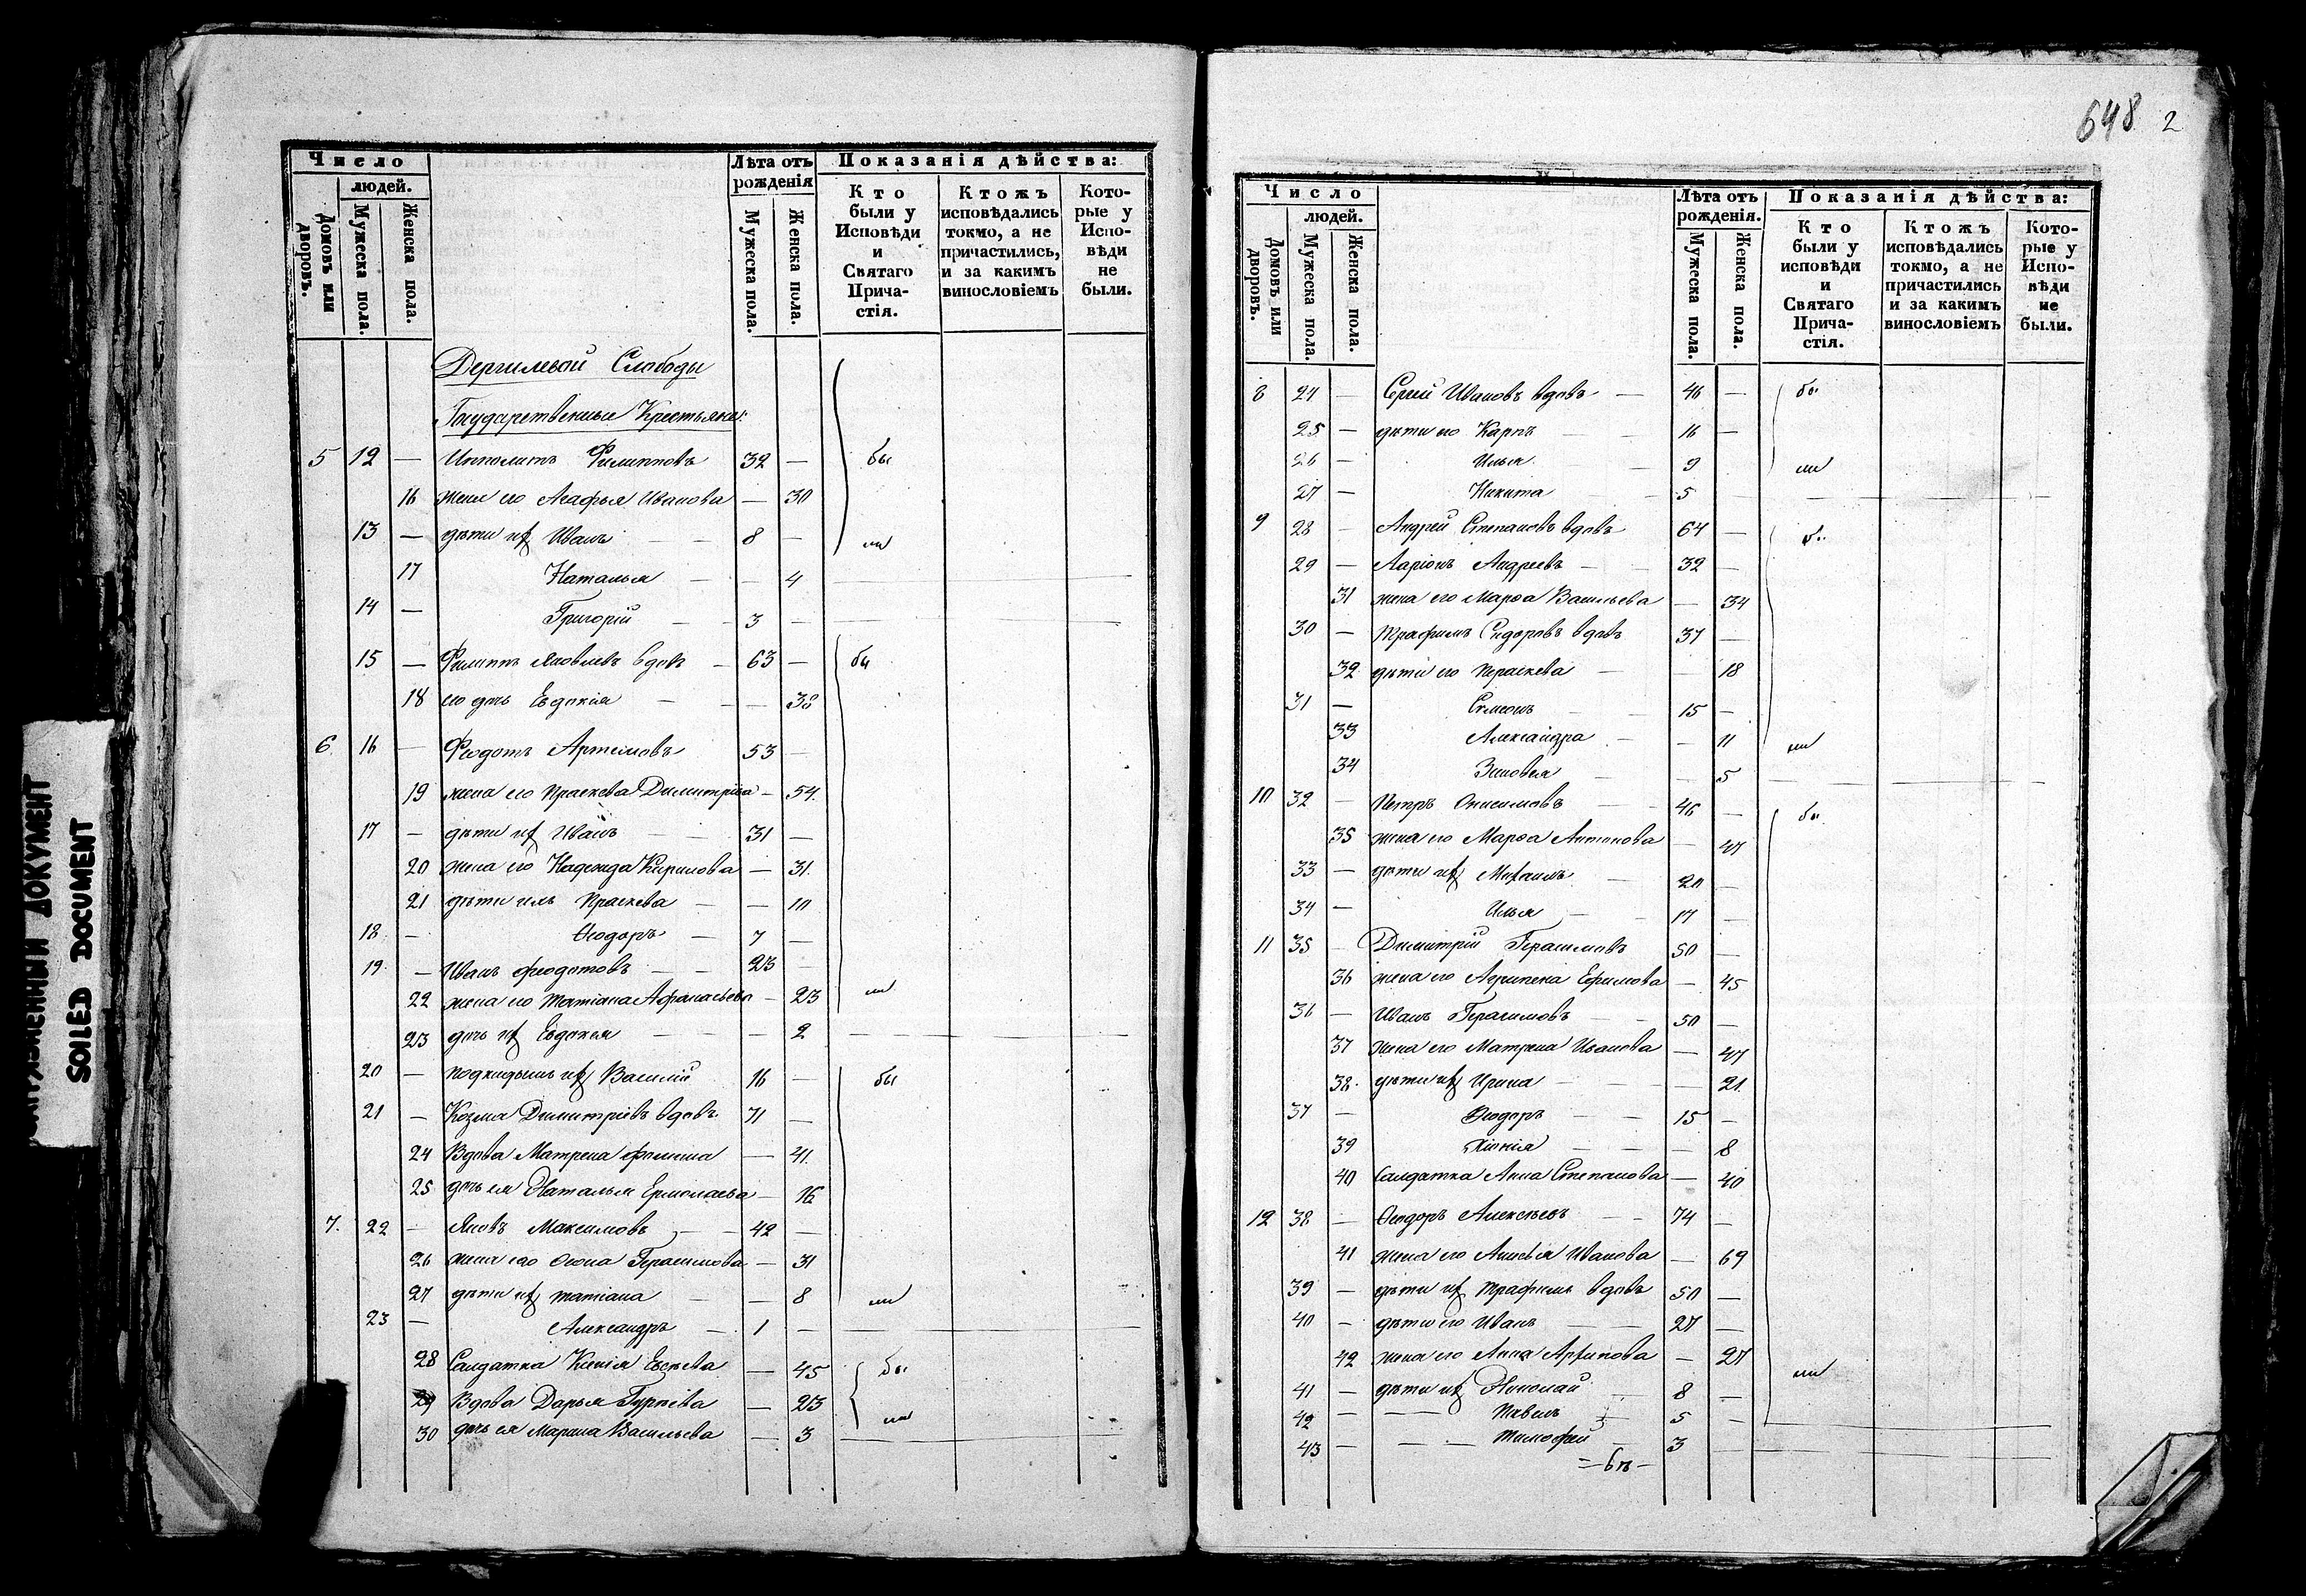 Число
людей.
Домовъ или дворовъ.
Мужеска пола.
Женска пола.
Лѣта отъ рожденія
Мужеска пола.
Женска пола.
Показанія дѣйства:
Кто были у Исповѣди и Святаго Причастія.
Ктожъ исповѣдались токмо, а не причастились, и за какимъ винословіемъ
Которые у Исповѣди не были.
Слободы
Государственные Крестьяне:
5 12 — Ипполитъ Филипповъ 32 — бы
16 жена его Агафья Иванова — 30
13 — дѣти ихъ Иванъ — — 8 — ли
17 Наталья — — 4
14 — Григорій — — 3 —
15 — Филиппъ Яковлевъ вдовъ — 63 — бы
18 его дочь Евдокія — — 38
6 16 — Феодотъ Артемовъ 53 —
19 жена его Праскева Димитріева — 54.
17 — дѣти ихъ Иванъ — — 31 —
20 жена его Надежда Кирилова — 31.
21 дѣти ихъ Праскева — — 10
18 — Ѳеодоръ — 7 —
19 — Иванъ Феодотовъ — — 23 —
22 жена его Татіана Афанасьева — 23 ли
23 дочь ихъ Евдокія — — 2
20 — подкидышъ ихъ Василій 16 — бы
21 — Козма Димитріевъ вдовъ. 71 —
24 Вдова Матрена Фомина — 41.
25 дочь ея Наталья Ермолаева — 16
7. 22 — Яковъ Максимовъ — — 42 —
26 жена его Ѳекла Герасимова — 31
27 дѣти ихъ Татіана — — 8 ли
23 — Александръ — 1 —
28 Салдатка Ксенія Евсѣева — 45 бы
29 Вдова Дарья Гурьева — 23
30 дочь ея Марина Васильева — 3 ли
648 2
Число
людей.
Домовъ или дворовъ.
Мужеска пола.
Женска пола.
Лѣта отъ рожденія.
Мужеска пола.
Женска пола.
Показанія дѣйства:
Кто были у исповѣди и Святаго Причастія.
Ктожъ исповѣдались токмо, а не причастились и за какимъ винословіемъ
Которые у Исповѣди не были.
8 24 — Сергій Ивановъ вдовъ — 46 — бы
25 — дѣти его Карпъ — — 16 —
26 — Илья — 9 ли
27 — Никита — 5
9 28 — Андрей Степановъ вдовъ 64 — бы
29 — Ларіонъ Андреевъ — 32 —
31 жена его Марѳа Васильева — 34
30 — Трафимъ Сидоровъ вдовъ 37 —
32 дѣти его Праскева — — 18
31 — Симеонъ — 15 —
33 Александра — — 11 ли
34 Зиновья — — 5
10 32 — Петръ Онисимовъ — 46 — бы
35 жена его Марѳа Антонова — 47
33 — дѣти ихъ Михаилъ — 20 —
34 — Илья — — 17 —
11 35 — Димитрій Герасимовъ 50 —
36 жена его Агрипена Ефимова — 45
36 — Иванъ Герасимовъ — 50 —
37 жена его Матрена Иванова — 47
38. дѣти ихъ Ирина — — 21.
37 — Ѳеодоръ — — 15 —
39 Хіонія — — — 8
40 Салдатка Анна Степанова — 40
12 38 — Ѳеодоръ Алексѣевъ — — 74 —
41 жена его Анисья Иванова — 69
39 — дѣти ихъ Трафимъ вдовъ 50 —
40 — дѣти его Иванъ — — 27 —
42 жена его Анна Архипова — 27 ли
41 — дѣти ихъ Николай — 8 —
42 — — Павелъ — 5 —
43 — — — Тимофей — 3
СОЛЕННЫЙ ДОКУМЕНТ
SOILED DOCUMENT